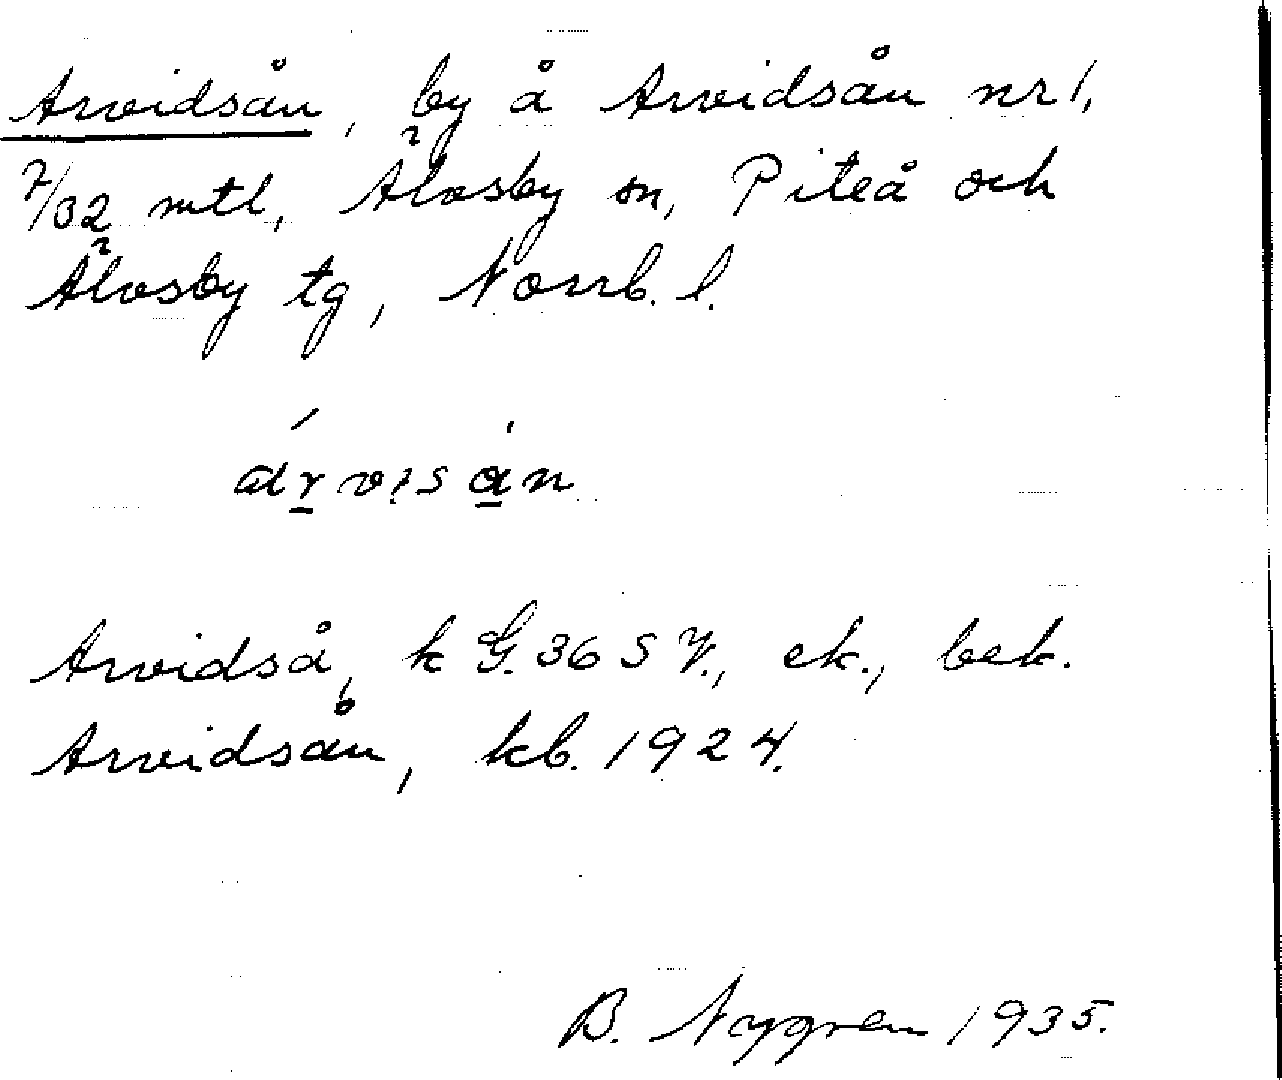 Arvidsån, by å Arvidsån nr 1,
7/32 mtl, Älvsby sn, Piteå och
Älvsby tg, Norrb. l.
Arvidså, k G. 36 S V., ek., bek.
Arvidsån, kb. 1924.
B. Nygren 1935.